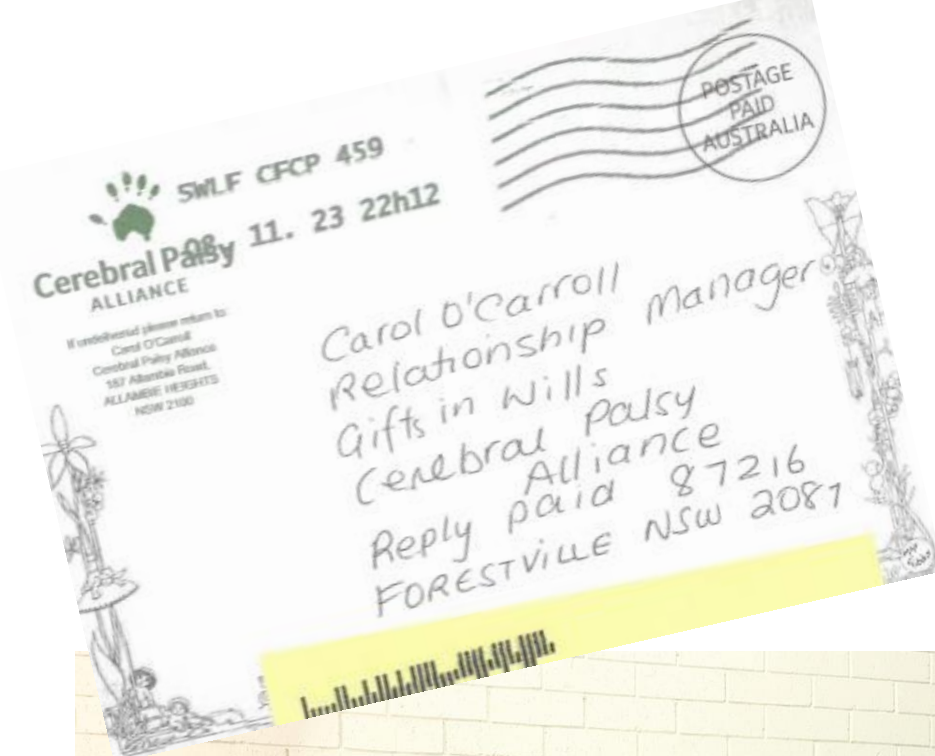 SWLF CFCP 459
08. 11. 23 22h12
POSTAGE
PAID
AUSTRALIA
Cerebral Palsy
ALLIANCE
If undelivered please return to:
Carol O'Carroll
Cerebral Palsy Alliance
187 Allambie Road,
ALLAMBIE HEIGHTS
NSW 2100
Carol O'Carroll
Relationship Manager
Gifts in Wills
Cerebral Palsy
Alliance
Reply paid 87216
FORESTVILLE NSW 2087